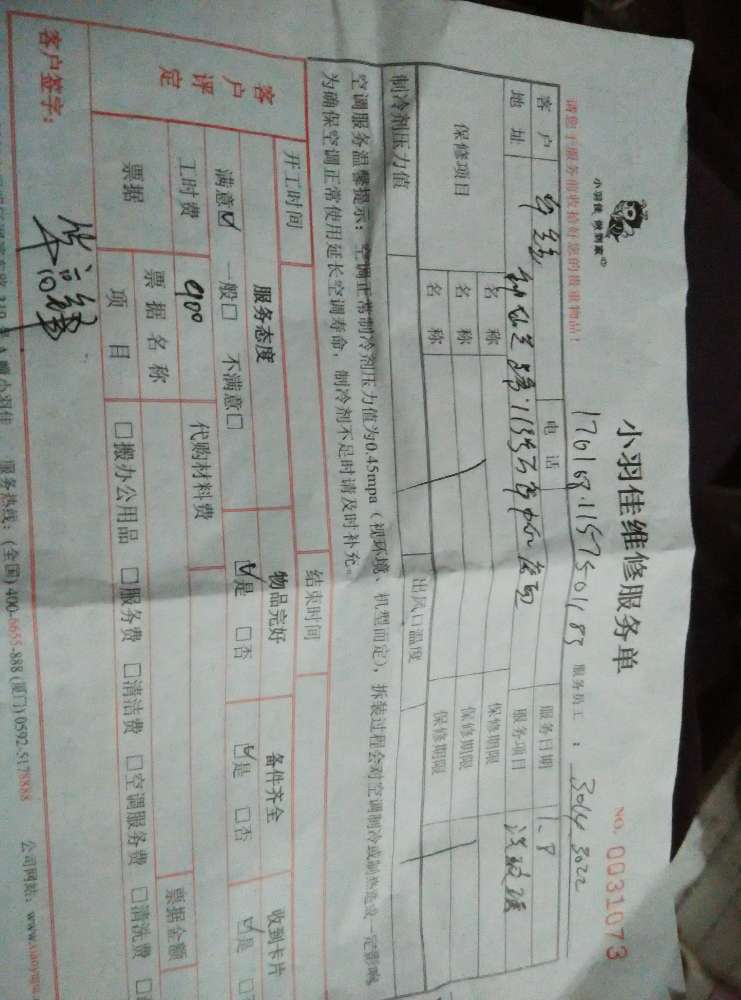 小羽佳 做到家
小羽佳维修服务单
NO. 0031073
请您于服务前收拾好您的贵重物品!
170108.1157501183
服务员工 : 3014 3022
客户
电话
服务日期 1.8
地址
服务项目
保修项目
名称
保修期限
名称
保修期限
名称
保修期限
制冷剂压力值
出风口温度
空调服务温馨提示:空调正常制冷剂压力值为0.45mpa(视环境、机型而定),拆装过程会对空调制冷或制热造成一定影响
为确保空调正常使用延长空调寿命,制冷剂不足时请及时补充。
开工时间
结束时间
客户评定
服务态度
物品完好
备件齐全
收到卡片
满意☑ 一般□ 不满意□
☑是 □否
☑是 □否
☑是
工时费 900
代购材料费
票据
票据名称
票据金额
项目
□搬办公用品 □服务费 □清洁费 □空调服务费 □清洗费
客户签字:
小羽佳 服务热线:(全国)400-6655-888 (厦门)0592-5178888
公司网站: